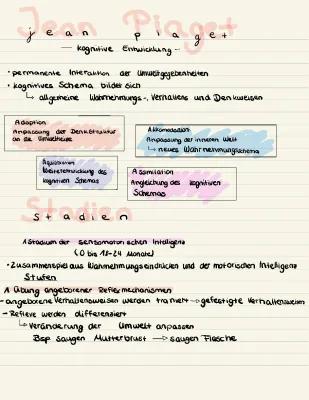 Jean Piaget
jean piaget
- kognitive Entwicklung -
• permanente Interaktion der Umweltgegebenheiten
• kognitives Schema bildet sich
↳ allgemeine Wahrnehmungs-, Verhaltens und Denkweisen
Adaption
Anpassung der Denkstruktur
an die Umwelteize
Akkomodation
Anpassung der inneren Welt
↳ neues Wahrnehmungsschema
Weiterentwicklung des
kognitiven Schemas
Assimilation
Angleichung des kognitiven
Schemas
Stadien
stadien
1. Stadium der sensomotorischen Intelligenz
(0 bis 18-24 Monate)
• Zusammenspiel aus Wahrnehmungseindrücken und der motorischen Intelligenz
Stufen
1. Übung angeborener Reflexmechanismen
- angeborene Verhaltensweisen werden trainiert → gefestigte Verhaltensweisen
- Reflexe werden differenziert
↳ Veränderung der Umwelt anpassen
Bsp saugen Mutterbrust → saugen Flasche